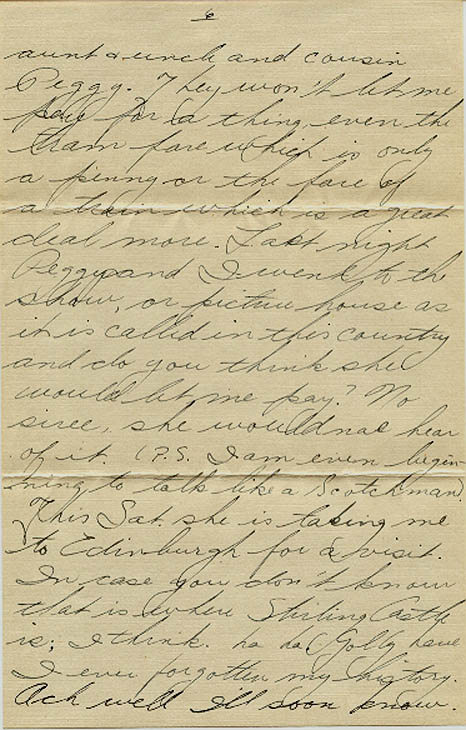 6
aunt & uncle and cousin
Peggy. They won't let me
pay for a thing, even the
tram fare which is only
a penny or the fare of
a train which is a great
deal more. Last night
Peggy and I went to the
show, or picture house as
it is called in this country
and do you think she
would let me pay? No
siree, she would nae hear
of it. (P.S. I am even begin-
ning to talk like a Scotchman)
This Sat. she is taking me
to Edinburgh for a visit.
In case you don't know
that is where Stirling Castle
is; I think. ha ha (Golly, have
I ever forgotten my history.
Ach well I'll soon know.